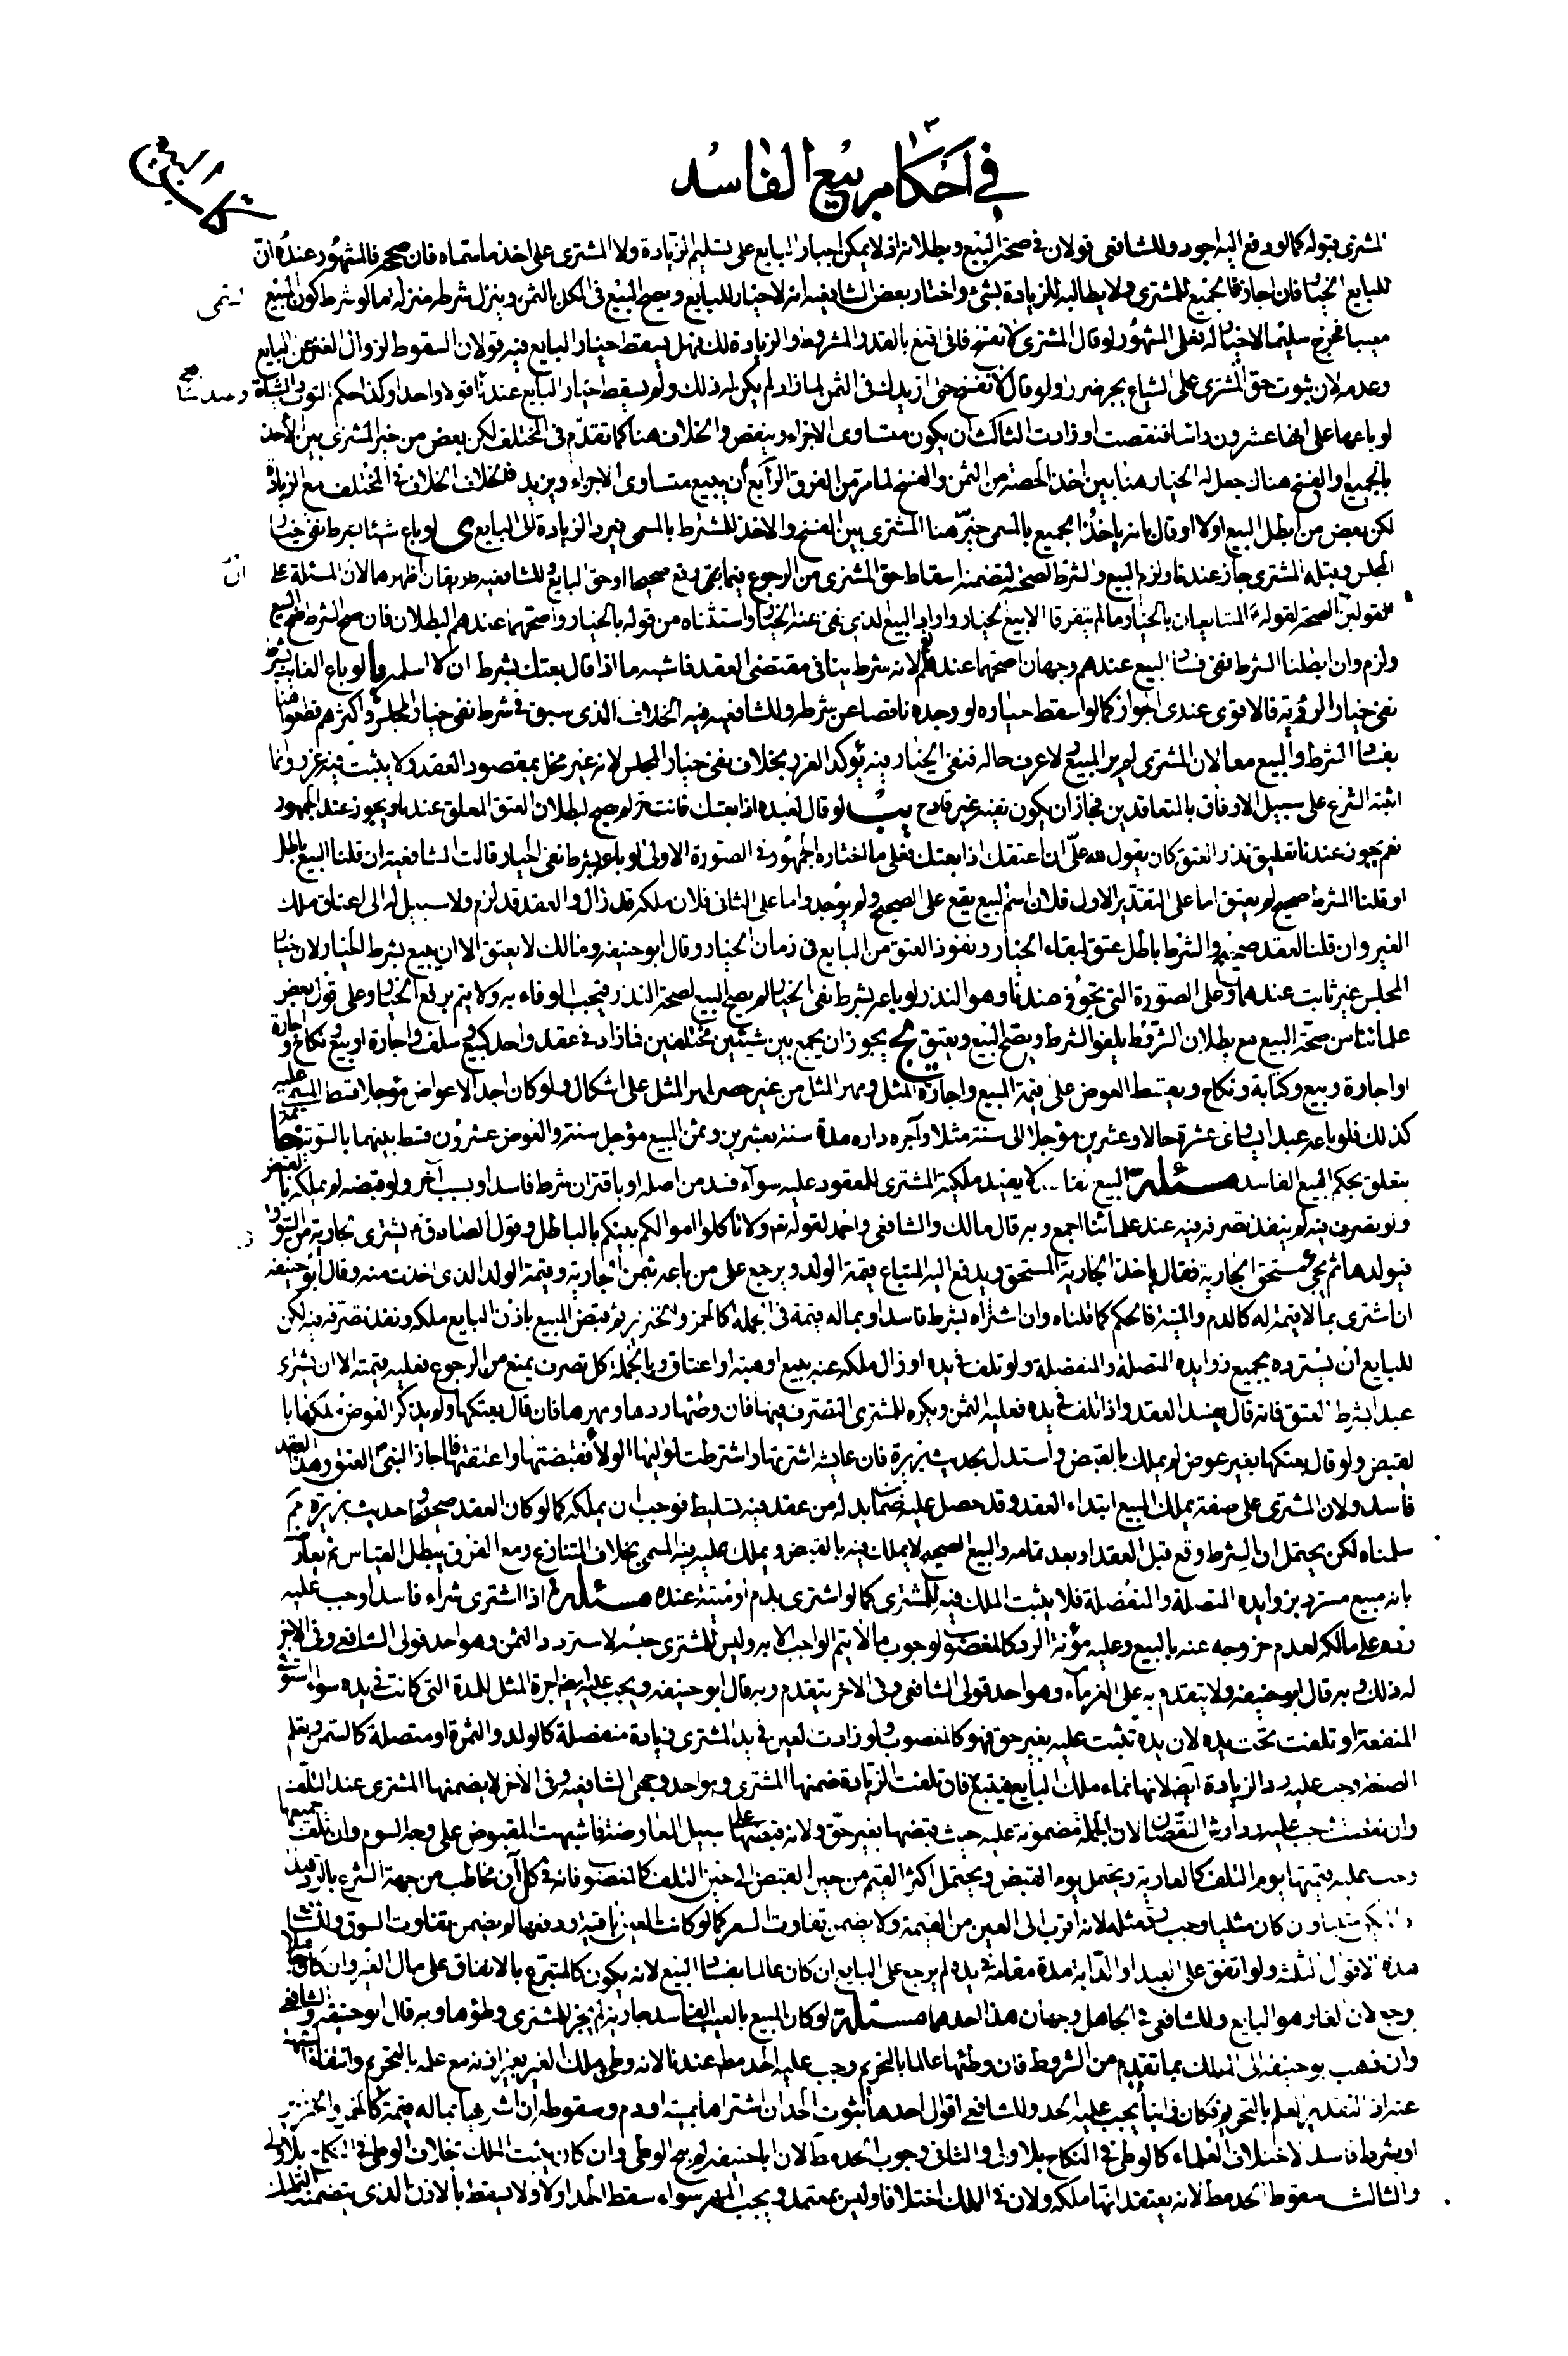 في احكام بيع الفاسد
المشتري قبوله كما لو دفع اليه اجود وللشافعي قولان في صحة البيع وبطلانه اذ لا يمكن اجبار البايع على تسليم الزيادة ولا المشتري على اخذ ما سماه فان صح فالمشهور عنده ان
للبايع الخيار فان اجاز فالجميع للمشتري ولا يطالبه للزيادة بشئ واختار بعض الشافعية انه لا خيار للبايع ويصح البيع في الكل بالثمن وينزل شرطه منزلة ما لو شرط كون المبيع
معيبا فخرج سليما لا خيار له فعلى المشهور لو قال المشتري لا تفسخ فاني اقنع بالقدر المشروط والزيادة لك فهل يسقط خيار البايع فيه قولان السقوط لزوال الغبن عن البايع
وعدمه لان ثبوت حق المشتري على الشياع يجر ضررا ولو قال لا تفسخ حتى ازيدك في الثمن لما زاد لم يكن له ذلك ولم يسقط خيار البايع عندنا قولا واحدا وكذا حكم الثوب
لو باعها على انها عشرون ذراعا فنقصت او زادت الثالث ان يكون متساوى الاجزاء وينقص والخلاف هنا كما تقدم في المختلف لكن بعض من خير المشتري بين الاخذ
بالجميع او الفسخ هناك جعل له الخيار هنا بين اخذ الحصة من الثمن والفسخ لما مر من الفرق الرابع أن يبيع متساوى الاجزاء ويزيد فالخلاف الخلاف في المختلف مع الزيادة
لكن بعض من ابطل البيع اولا او قال بانه ياخذ الجميع بالمسمى خير هنا المشتري بين الفسخ والاخذ للمشترط بالمسمى فيرد الزيادة الى البايع ى لو باع شيئا بشرط نفي خيار
المجلس وقبله المشتري جاز عندنا ولزم البيع والشرط لصحته لتضمنه اسقاط حق المشتري من الرجوع فيما وقع صحيحا او حق البايع وللشافعية طريقان اظهرهما لان المسئلة على
قولين الصحة لقوله المتبايعان بالخيار ما لم يتفرقا الا بيع الخيار واراد البيع الذي نفى عنه الخيار واستثناه من قوله بالخيار واصحهما عندهم البطلان فان صح الشرط صح البيع
ولزم وان ابطلنا الشرط ففي فساد البيع عندهم وجهان اصحهما عندهم نعم لانه شرط ينافى مقتضى العقد فاشبه ما اذا قال بعتك بشرط ان لا اسلمه يا لو باع الغايب بشرط
نفي خيار الرؤية فالاقوى عندى الجواز كما لو اسقط خياره لو وجده ناقصا عن شرطه وللشافعية فيه الخلاف الذي سبق في شرط نفي خيار المجلس واكثرهم قطعوا هنا
بفساد الشرط والبيع معا لان المشتري لم ير المبيع ولا عرف حاله فنفي الخيار فيه يؤكد الغرر بخلاف نفي خيار المجلس لانه غير مخل بمقصود العقد ولا يثبت فيه غررا وانما
اثبته الشرع على سبيل الارفاق بالمتعاقدين فجاز ان يكون نفيه غير قادح يب لو قال لعبده اذا بعتك فانت حر لم يصح لبطلان العتق المعلق عندنا ويجوز عند الجمهور
نعم يجوز عندنا تعليق نذر العتق كان يقول لله علي ان اعتقك اذا بعتك فعلى ما اختاره الجمهور في الصورة الاولى لو باعه بشرط نفي الخيار قالت الشافعية ان قلنا البيع باطل
او قلنا الشرط صحيح لم يعتق اما على التقدير الاول فلان اسم البيع يقع على الصحيح ولم يوجد واما على الثاني فلان ملكه قد زال والعقد قد لزم ولا سبيل له الى اعتاق ملك
الغير وان قلنا العقد صحيح والشرط باطل عتق لبقاء الخيار ونفوذ العتق من البايع في زمان الخيار وقال ابو حنيفة ومالك لا يعتق الا ان يبيع بشرط الخيار لان خيار
المجلس غير ثابت عندهما وعلى الصورة التي تجوز عندنا وهو النذر لو باعه بشرط نفي الخيار لم يصح البيع لصحة النذر فيجب الوفاء به ولا يتم برفع الخيار وعلى قول بعض
علمائنا من صحة البيع مع بطلان الشرط يلغو الشرط ويصح البيع ويعتق يج يجوز ان يجمع بين شيئين مختلفين فما زاد في عقد واحد كبيع وسلف او اجارة او بيع ونكاح او اجارة
او اجارة وبيع وكتابة ونكاح ويقسط العوض على قيمة المبيع واجرة المثل ومهر المثل من غير حصر لمهر المثل على اشكال ولو كان احد الاعواض مؤجلا قسط المسمى عليه
كذلك فلو باعه عبدا يساوى عشرة حالا وعشرين مؤجلا الى سنة مثلا وآجره داره مدة سنة بعشرين وثمن المبيع مؤجل سنة والعوض عشرون قسط بينهما بالسوية
يتعلق بحكم البيع الفاسد مسئلة البيع لا يفيد ملكية المشتري للمعقود عليه سواء فسد من اصله او باقتران شرط فاسد او بسبب آخر ولو قبضه لم يملكه بالقبض
ولو تصرف فيه لم ينفذ تصرفه فيه عند علمائنا اجمع وبه قال مالك والشافعي واحمد لقوله تع ولا تاكلوا اموالكم بينكم بالباطل وقول الصادق يشترى الجارية من السوق
فيولدها ثم يجئ مستحق الجارية فقال ياخذ الجارية المستحق ويدفع اليه المبتاع قيمة الولد ويرجع على من باعه بثمن الجارية وقيمة الولد الذى اخذت منه وقال ابو حنيفة
ان اشترى بما لا قيمة له كالدم والميتة فالحكم كما قلناه وان اشتراه بشرط فاسد او بماله قيمة في الجملة كالخمر والخنزير ثم قبض المبيع باذن البايع ملكه ونفذ تصرفه فيه لكن
للبايع ان يسترده بجميع زوايده المتصلة والمنفصلة ولو تلف في يده او زال ملكه عنه ببيع او هبة او اعتاق وبالجملة كل تصرف يمنع من الرجوع فعليه قيمته الا ان يشترى
عبدا بشرط العتق فانه قال يفسد العقد واذا تلف في يده فعليه الثمن ويكره للمشترى التصرف فيها فان وطئها ردها ومهرها فان قال بعتكها ولم يذكر العوض ملكها با
لقبض ولو قال بعتكها بغير عوض لم يملك بالقبض واستدل بحديث بريرة فان عايشه اشترتها واشترطت لمواليها الولاء فقبضتها واعتقتها فاجاز النبي العتق وهذا العقد
فاسد ولان المشتري على صفة يملك المبيع ابتداء العقد وقد حصل عليه ضمان بدله من عقد فيه تسليط فوجب ان يملكه كما لو كان العقد صحيحا وحديث بريرة
سلمناه لكن يحتمل ان الشرط وقع قبل العقد او بعد تمامه والبيع الصحيح لا يملك فيه بالقبض ويملك عليه فيه المسمى بخلاف المتنازع ومع الفرق يبطل القياس ثم يعارض
بانه مبيع مسترد بزوايده المتصلة والمنفصلة فلا يثبت الملك فيه للمشترى كما لو اشترى بدم او ميتة عنده مسئلة اذا اشترى شراء فاسدا وجب عليه
رده على مالكه لعدم خروجه عنه بالبيع وعليه مؤنة الرد كالمغصوب لوجوب ما لا يتم الواجب الا به وليس للمشترى حبسه لاسترداد الثمن وهو احد قولى الشافعي وفي الاخر
له ذلك وبه قال ابو حنيفه ولا يتقدم به على الغرماء وهو احد قولى الشافعي وفي الاخر يتقدم وبه قال ابو حنيفه ويجب عليه ايضا اجرة المثل للمدة التي كانت في يده سواء استوفى
المنفعة او تلفت تحت يده لان يده تثبت عليه بغير حق فهو كالمغصوب ولو زادت العين في يد المشترى زيادة منفصلة كالولد والثمرة او متصلة كالسمن وتعلم
الصنعة وجب عليه رد الزيادة ايضا لانها نماء ملك البايع فيتبعه فان تلفت الزيادة ضمنها المشترى وهو احد وجهى الشافعية وفي الاخر لا يضمنها المشترى عند التلف
وان نقصت وجب عليه رد ارش النقصان لان الجملة مضمونة عليه حيث قبضها بغير حق ولانه قبضها على سبيل المعاوضة فاشبهت المقبوض على وجه السوم وان تلفت جميعها
وجب عليه قيمتها يوم التلف كالعارية ويحتمل يوم القبض ويحتمل اكثر القيم من حين القبض الى حين التلف كالمغصوب فانه في كل آن مخاطب من جهة الشرع بالرد
وان كان مثليا وجب مثله لانه اقرب الى العين من القيمة ولا يضمن تفاوت السعر كما لو كانت العين باقية ودفعها لم يضمن تفاوت السوق وللشافعي
هذه الاقوال الثلثة ولو انفق على العبد او الدابة مدة مقامه في يده لم يرجع على البايع ان كان عالما بفساد البيع لانه يكون كالمتبرع بالانفاق على مال الغير وان كان جاهلا
رجع لان الغار هو البايع وللشافعي في الجاهل وجهان هذا احدهما مسئلة لو كان المبيع بالبيع الفاسد جارية لم يجز للمشترى وطؤها وبه قال ابو حنيفة والشافعي
وان ذهب ابو حنيفة الى الملك بما تقدم من الشروط فان وطئها عالما بالتحريم وجب عليه الحد مط عندنا لانه وطى ملك الغير بغير اذنه مع علمه بالتحريم وانتفاء الشبهة
عنه اذ التقدير العلم بالتحريم فكان زانيا يجب عليه الحد وللشافعي اقوال احدها ثبوت الحد ان اشتراها بميتة او دم وسقوطه ان اشتريها بماله قيمة كالخمر والخنزير
او بشرط فاسد لاختلاف العلماء كالوطى في النكاح بلا ولي والثاني وجوب الحد مط لان ابا حنيفة لم يبح الوطى وان كان يثبت الملك بخلاف الوطى في النكاح بلا ولي
والثالث سقوط الحد مط لانه يعتقد انها ملكه ولان في الملك اختلافا وليس بمعتمد ويجب المهر سواء سقط الحد او لا ولا يسقط بالاذن الذى يتضمنه التمليك